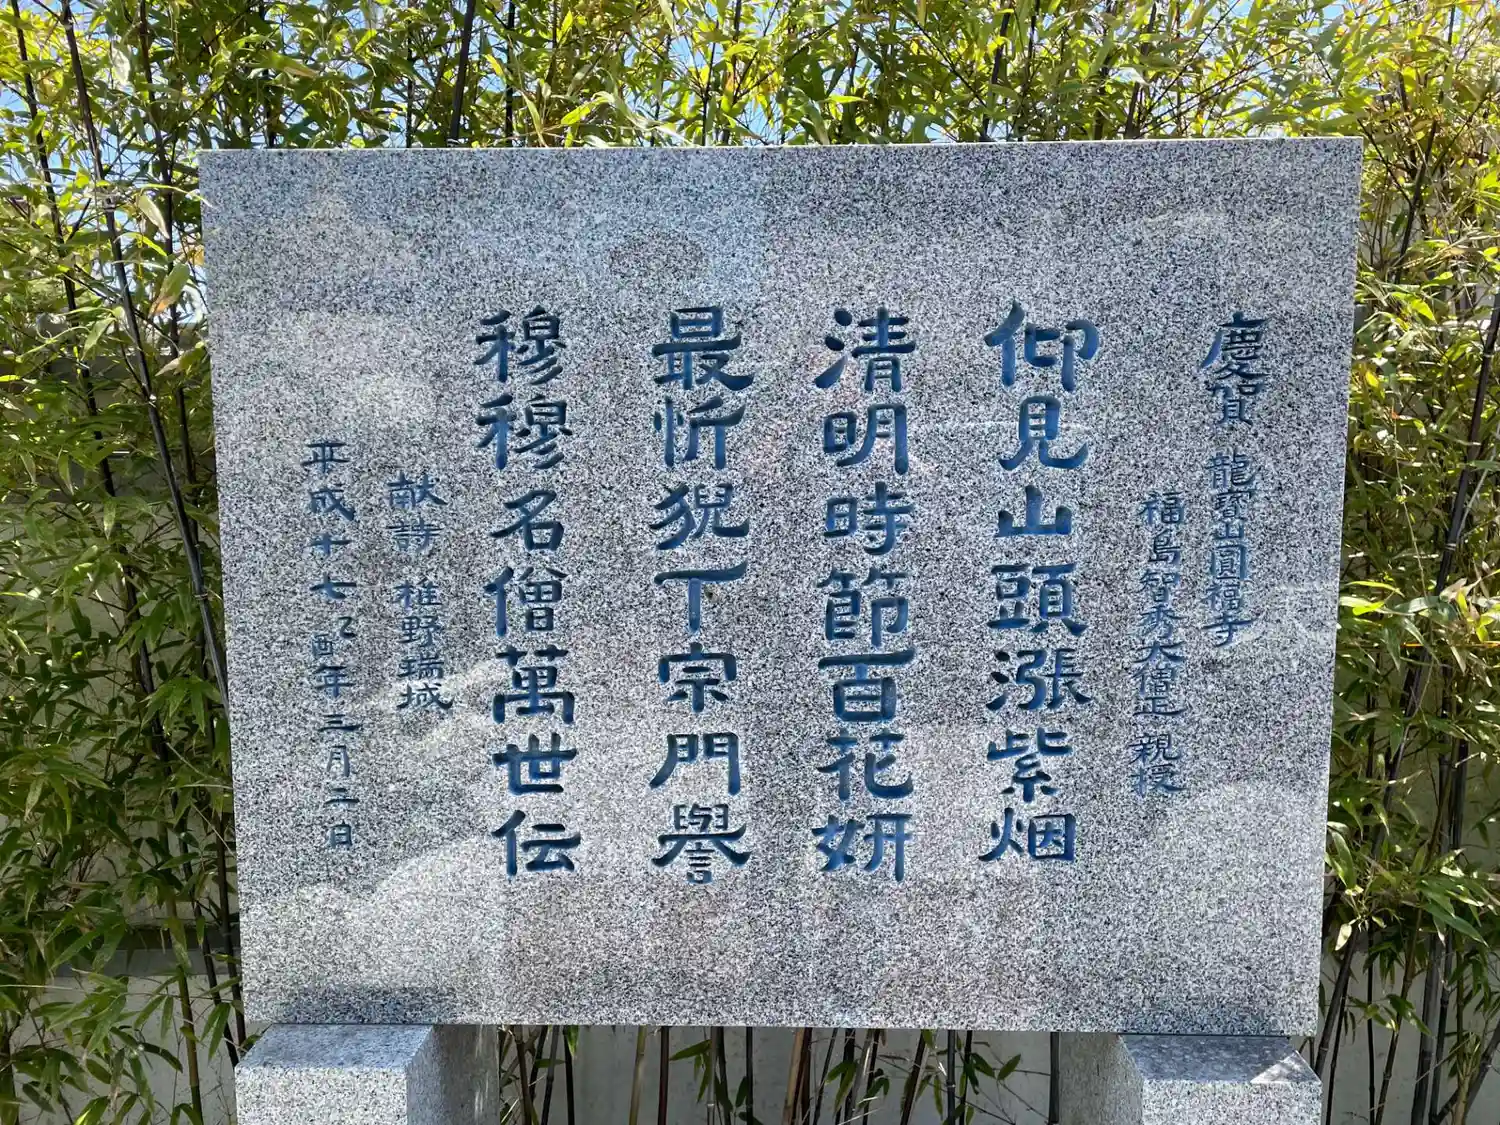 慶賀 龍寶山圓福寺
福島智秀大僧正 親授
仰見山頭漲紫烟
清明時節百花妍
最忻猊下宗門譽
穆穆名僧萬世伝
献詩 椎野瑞城
平成十七乙酉年三月二日